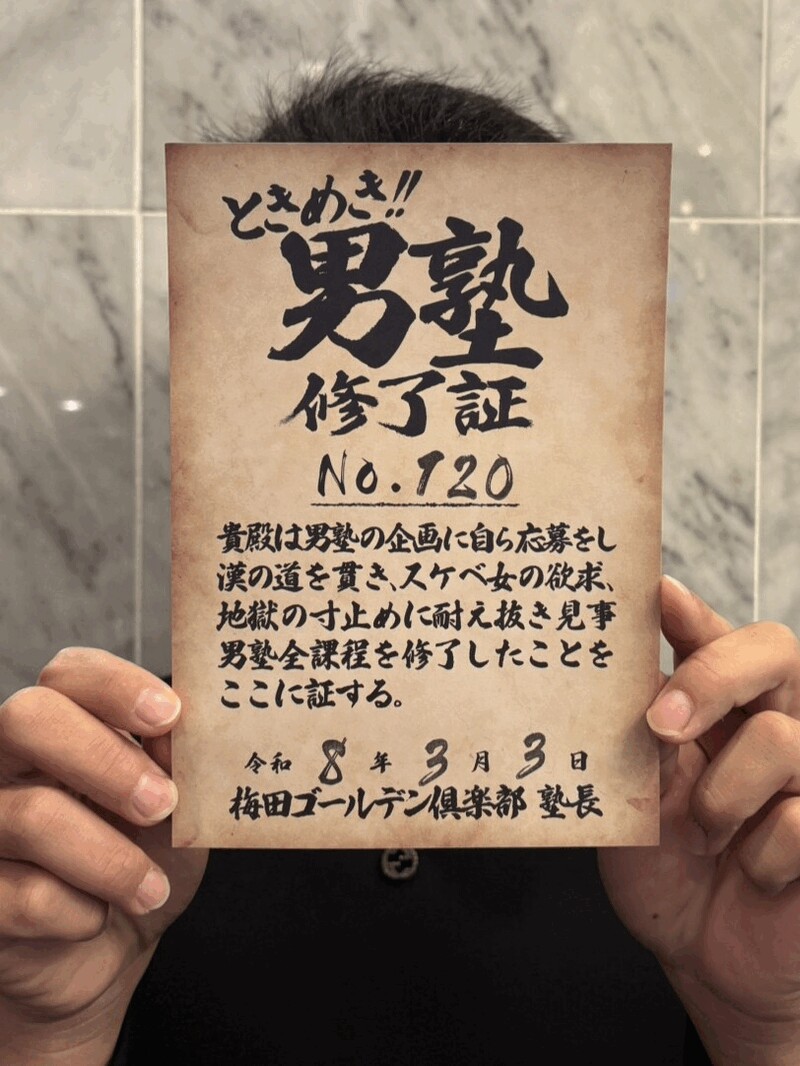 ときめき!!
男塾
修了証
No.120
貴殿は男塾の企画に自ら応募をし
漢の道を貫き、スケベ女の欲求、
地獄の寸止めに耐え抜き見事
男塾全課程を修了したことを
ここに証する。
令和 8 年 3 月 3 日
梅田ゴールデン倶楽部 塾長